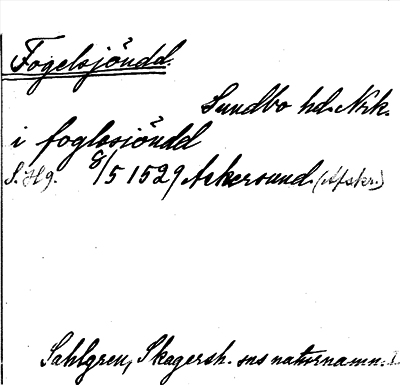 Fogelsjöudd.
Sundbo hd. Nrk.
i foglosiöudd
S. H 9. 8/5 1529 Askersund. (Afskr.)
Sahlgren, Skagersh. sns naturnamn.